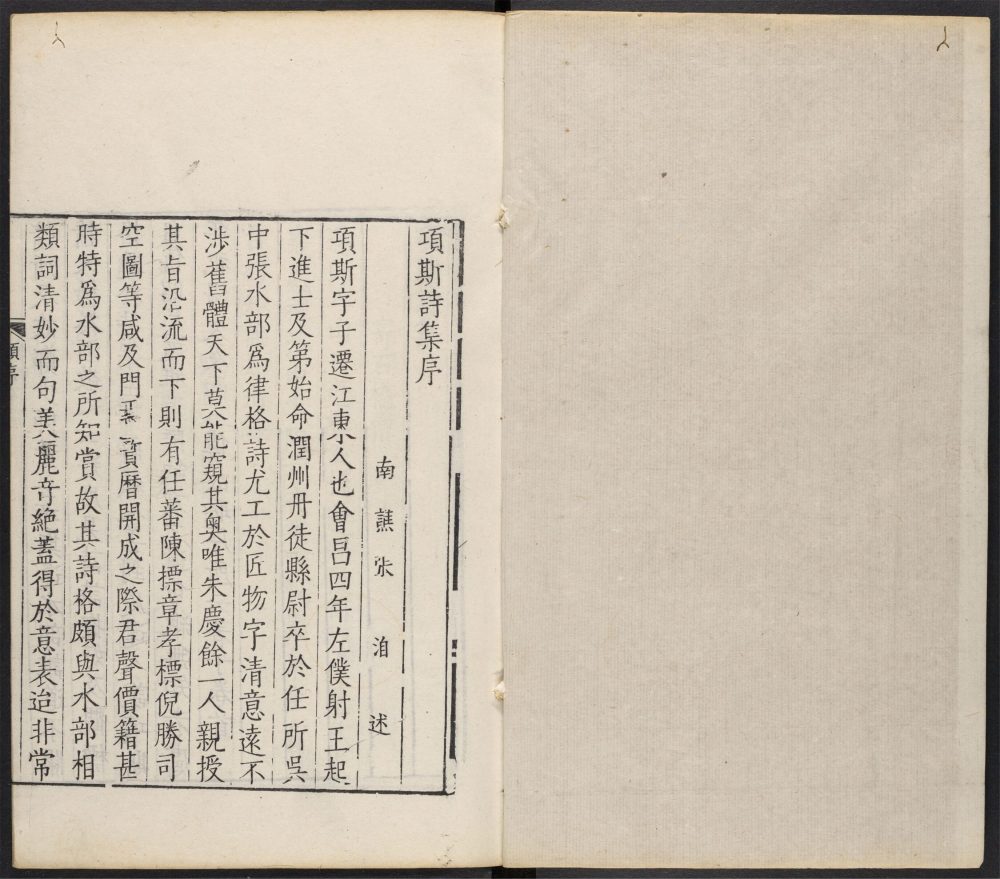 項斯詩集序
南譙張洎述
項斯字子遷江東人也會昌四年左僕射王起
下進士及第始命潤州丹徒縣尉卒於任所吳
中張水部爲律格詩尤工於匠物字清意遠不
涉舊體天下莫能窺其奧唯朱慶餘一人親授
其旨沿流而下則有任蕃陳摽章孝標倪勝司
空圖等咸及門焉寳曆開成之際君聲價籍甚
時特爲水部之所知賞故其詩格頗與水部相
類詞清妙而句美麗竒絶蓋得於意表迨非常
項序